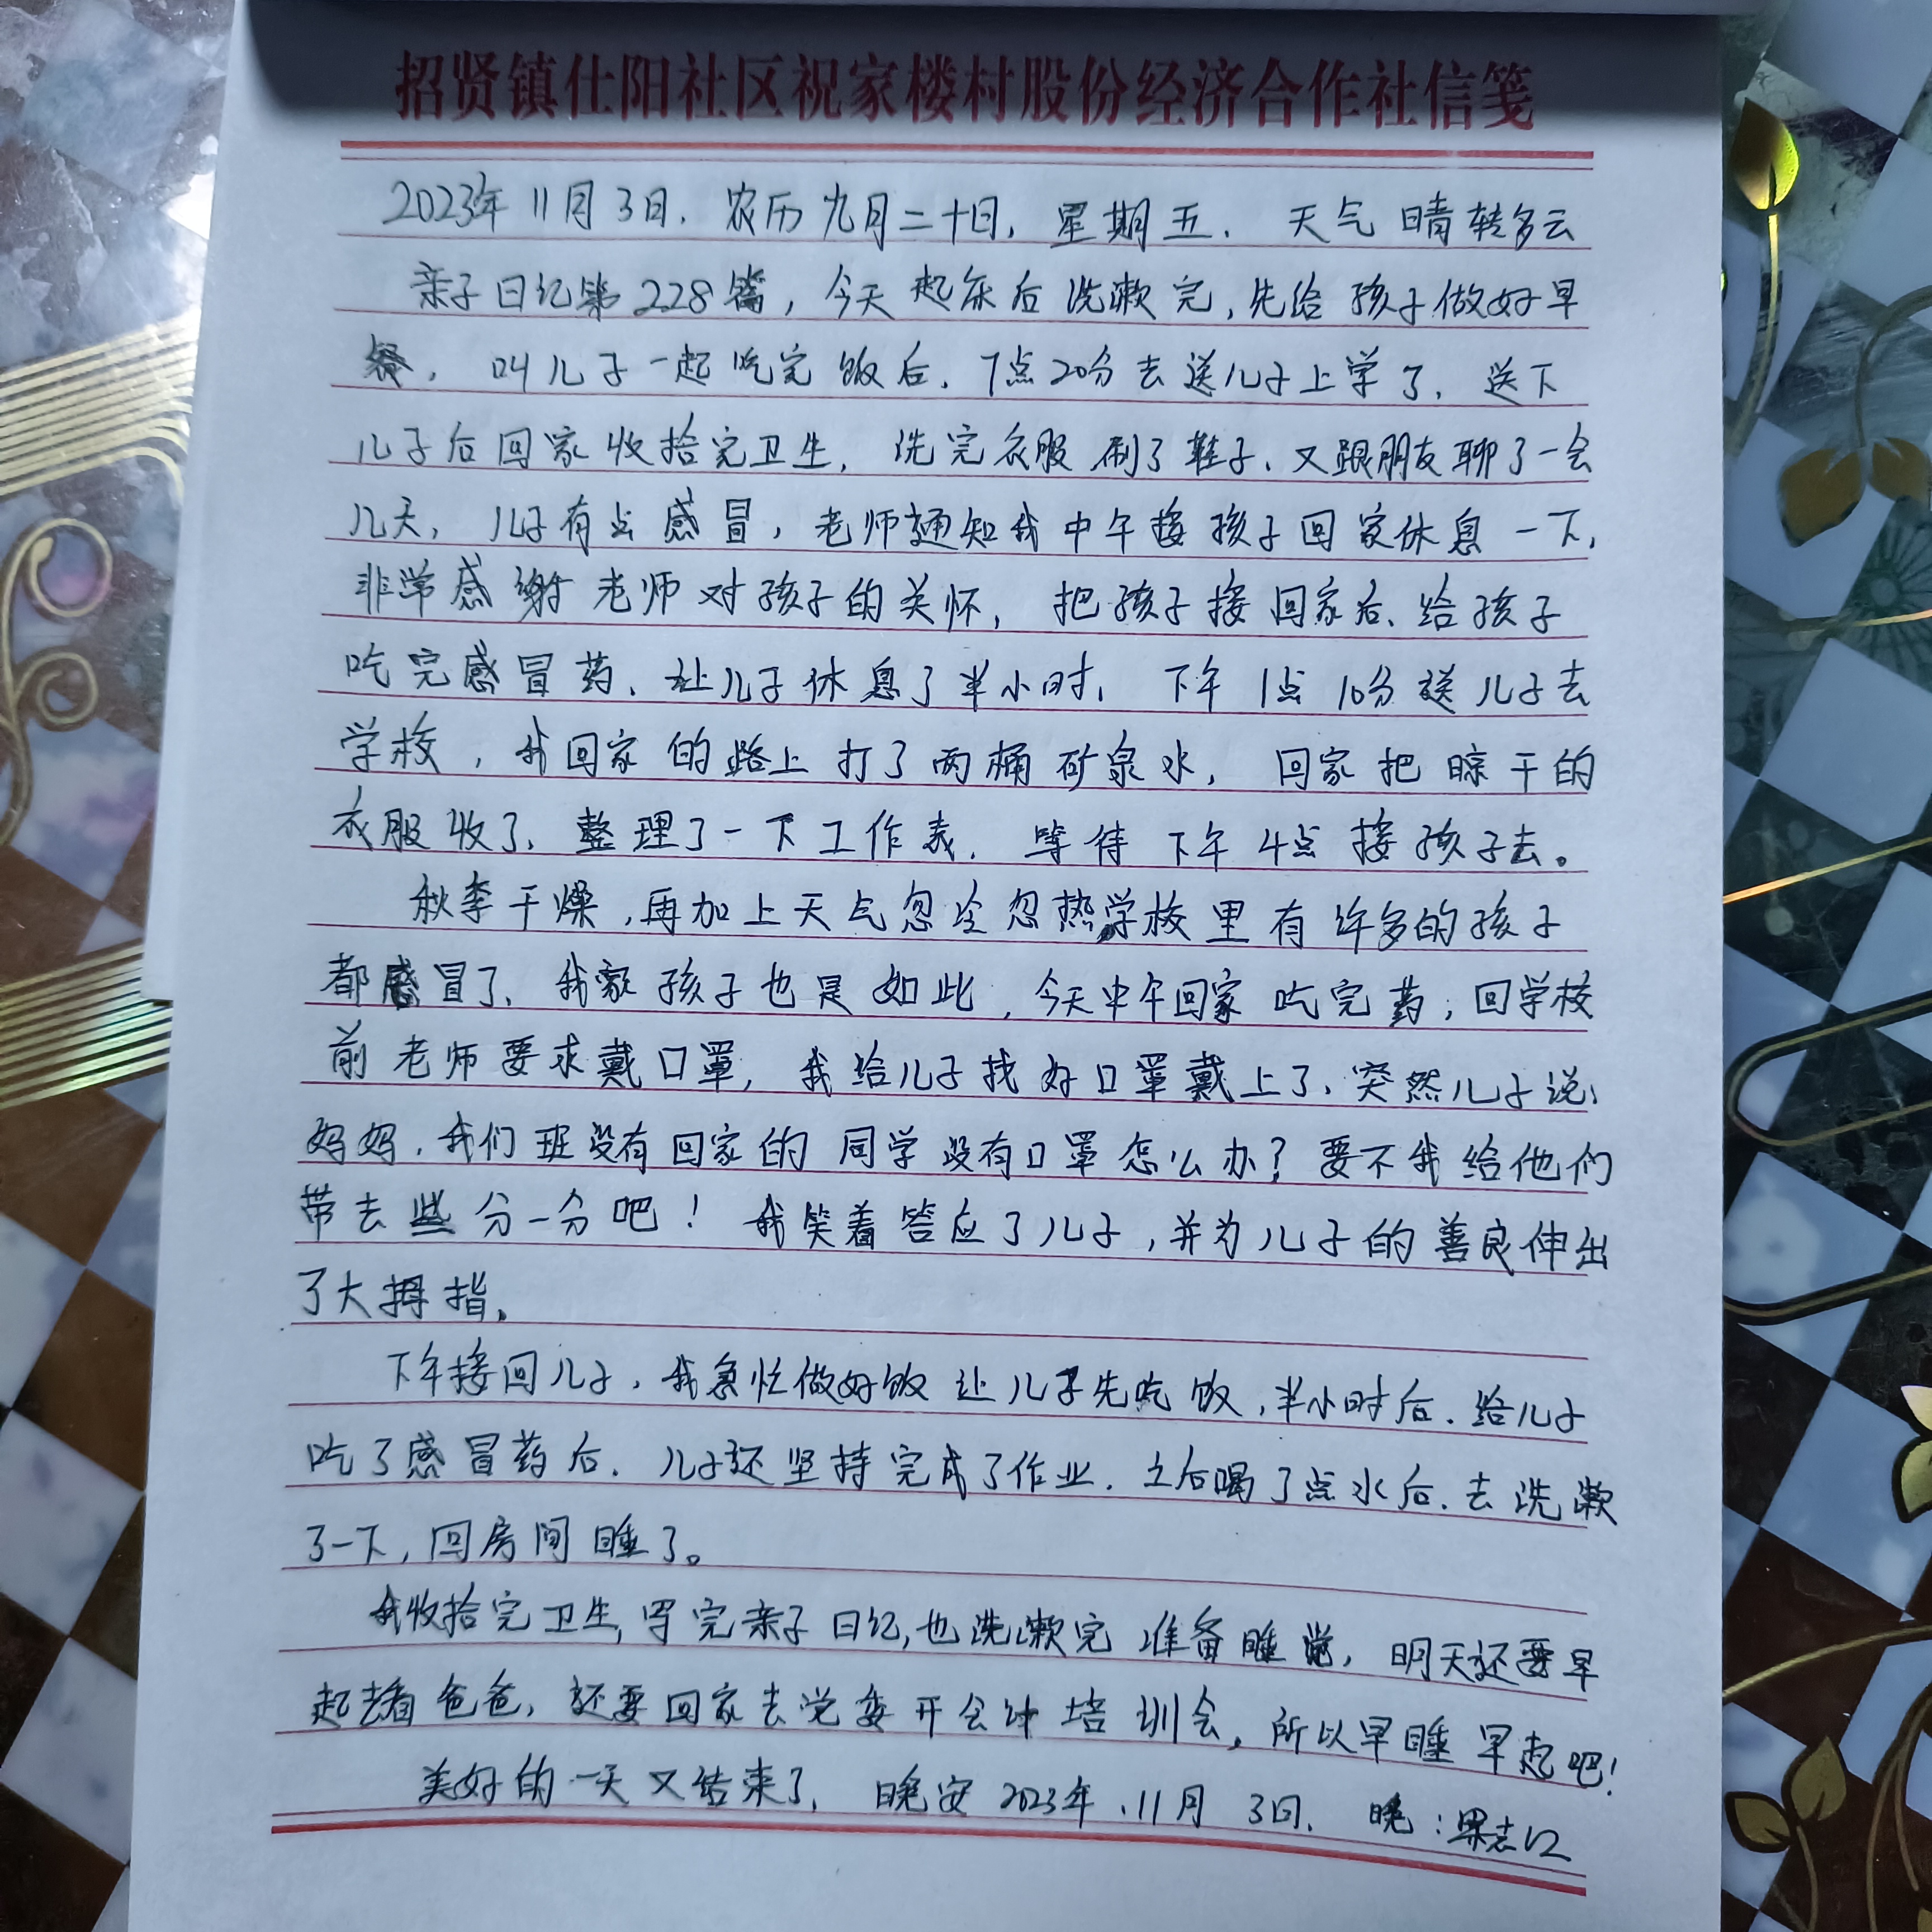 招贤镇仕阳社区祝家楼村股份经济合作社信笺
2023年11月3日.农历九月二十日,星期五.天气晴转多云
亲子日记第228篇,今天起床后洗漱完,先给孩子做好早
餐,叫儿子一起吃完饭后.7点20分去送儿子上学了,送下
儿子后回家收拾完卫生,洗完衣服刷了鞋子、又跟朋友聊了一会
儿天,儿子有点感冒,老师通知我中午接孩子回家休息一下,
非常感谢老师对孩子的关怀,把孩子接回家后、给孩子
吃完感冒药、让儿子休息了半小时,下午1点10分送儿子去
学校,我回家的路上打了两桶矿泉水,回家把晾干的
衣服收了、整理了一下工作表,等待下午4点接孩子去。
秋季干燥,再加上天气忽冷忽热,学校里有许多的孩子
都感冒了、我家孩子也是如此,今天中午回家吃完药,回学校
前老师要求戴口罩,我给儿子找好口罩戴上了、突然儿子说:
妈妈,我们班没有回家的同学没有口罩怎么办?要不我给他们
带去些分一分吧!我笑着答应了儿子,并为儿子的善良伸出
了大拇指。
下午接回儿子,我急忙做好饭让儿子先吃饭,半小时后.给儿子
吃了感冒药后.儿子还坚持完成了作业.之后喝了点水后.去洗漱
了一下,回房间睡了。
我收拾完卫生,写完亲子日记,也洗漱完准备睡觉,明天还要早
起去看爸爸,还要回家去党委开会计培训会,所以早睡早起吧!
美好的一天又结束了,晚安2023年.11月3日.晚: